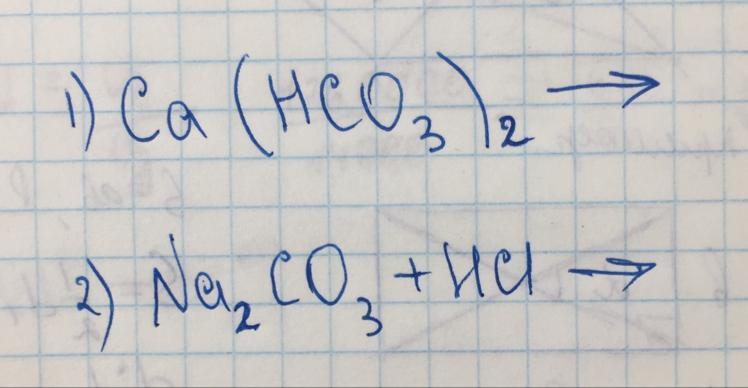 1) Ca(HCO₃)₂ →
2) Na₂CO₃ + HCl →